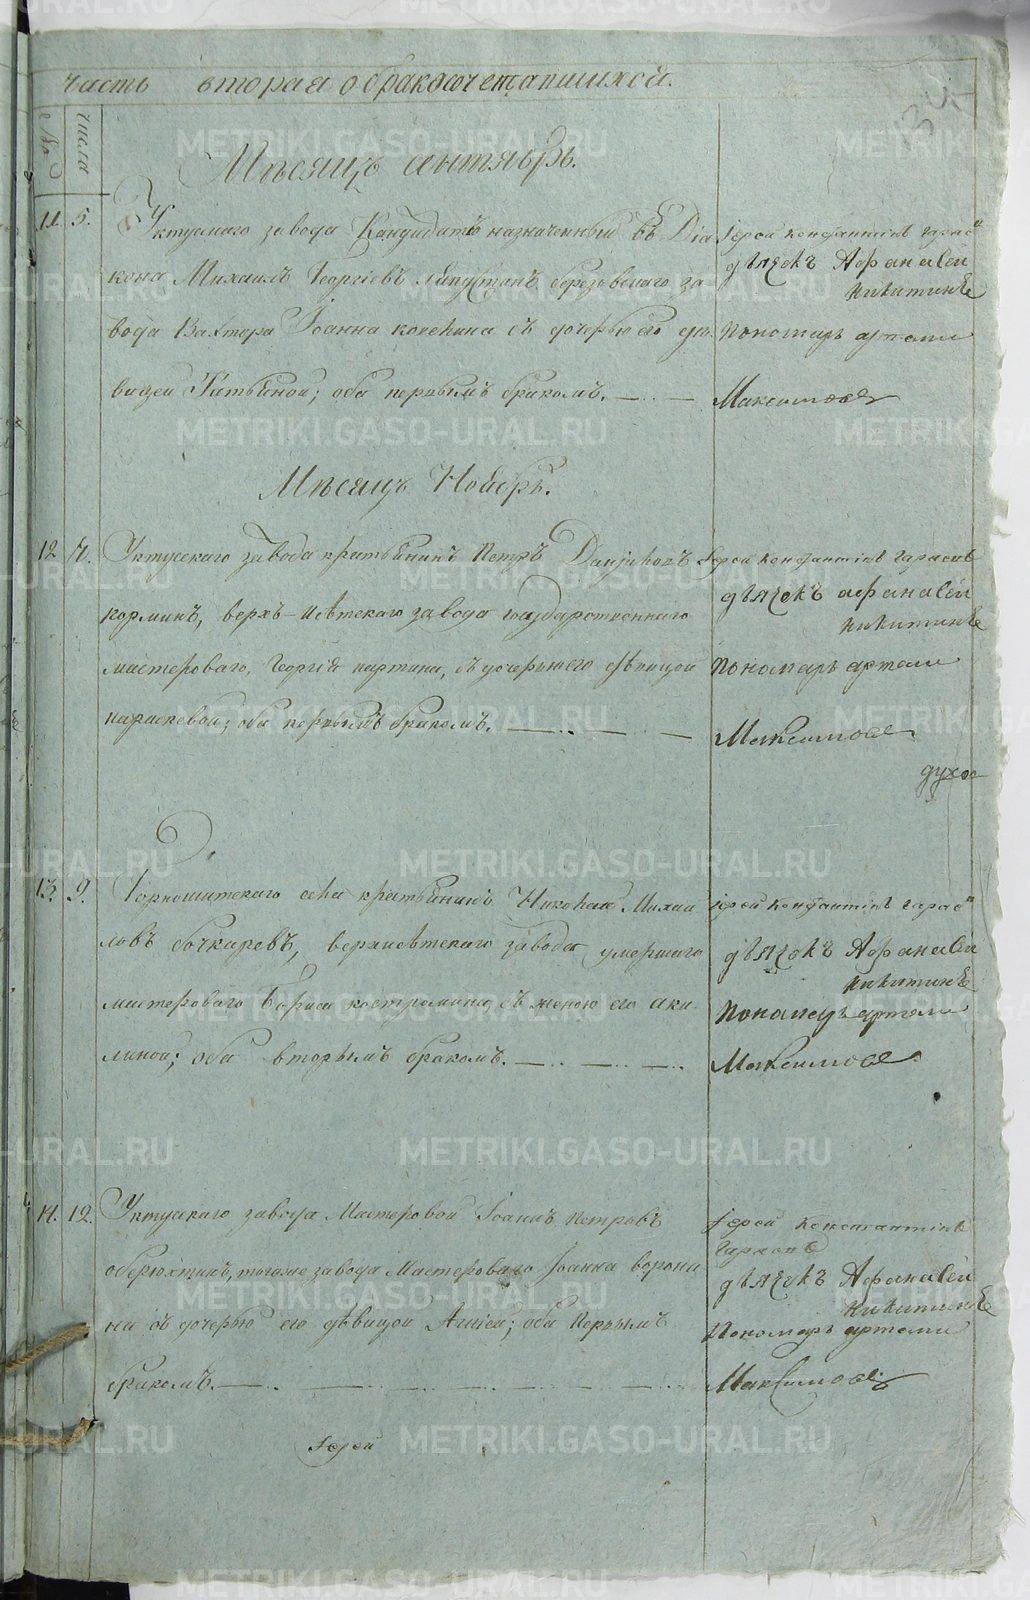 часть вторая о бракосочетавшихся.
№
числа
Мѣсяцъ сентябрь.
11. 5. Уктускаго завода Кандидатъ назначенный въ Діа
кона Михаилъ Георгіевъ березовскаго за
вода Вахтера Іоанна с дочерью его дѣ
вицей Татьяной; оба первымъ бракомъ.
Іерей Константинъ
дьячекъ Афанасей
Никитинъ
Пономарь артами
Максимовъ
Мѣсяцъ Ноябрь.
12 7. Уктускаго завода крестьянинъ Петръ
корминъ, верхъ-Исетскаго завода государственнаго
мастероваго, Георгія съ дочерью его дѣвицой
параскевой; оба первымъ бракомъ.
Іерей Констанинъ
дьячекъ афанасей
никитинъ
пономарь артами
Максимовъ
духов
13. 9. Горношитскаго села крестьянинъ Николай Михаи
ловъ бочкаревъ, верхисетскаго завода умершаго
мастероваго Бориса костромина съ женою его аки
линой; оба вторымъ бракомъ.
Іерей Констанинъ
дьячекъ Афанасей
никитинъ
Пономарь артами
Максимовъ
14. 12. Уктускаго завода Мастеровой Іоаннъ Петровъ
оберюхтинъ, тогоже завода Мастероваго Іоанна ворони
на съ дочерью его дѣвицой Агніей; оба Первымъ
бракомъ.
Іерей Констанинъ
дьячекъ Афанасей
никитинъ
Пономарь артами
Максимовъ
Іерей
METRIKI.GASO-URAL.RU